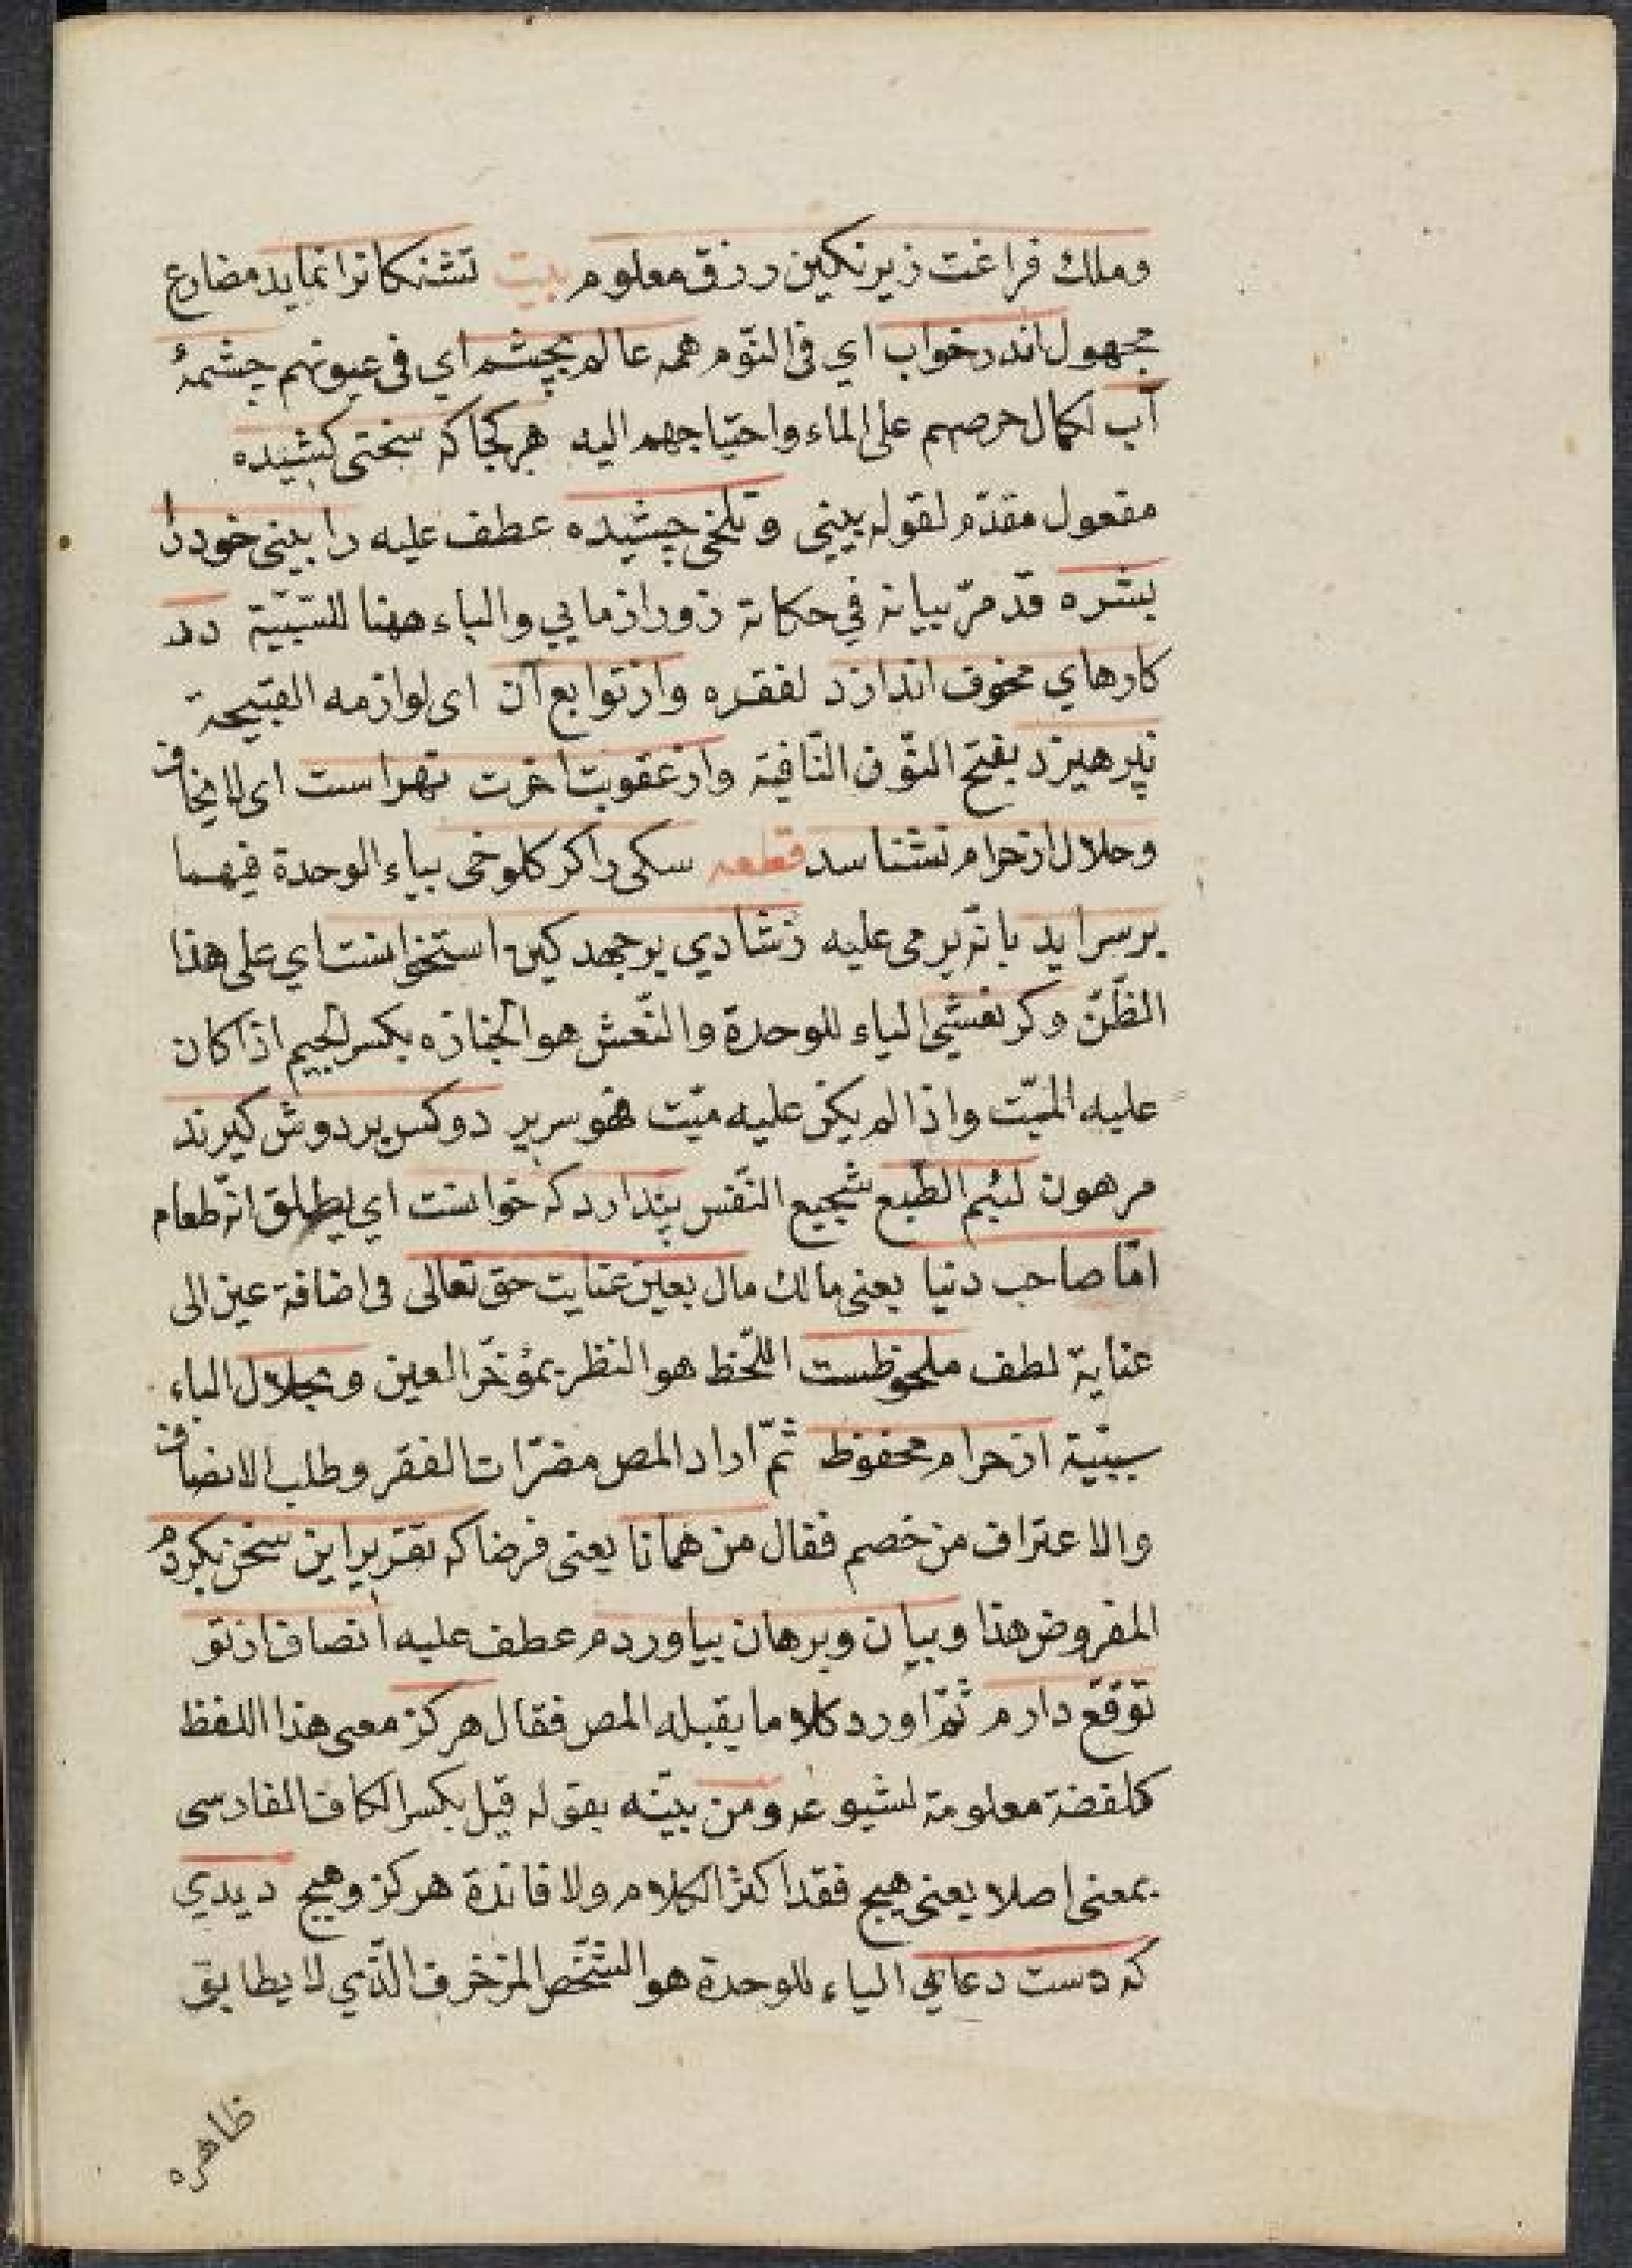 وملك فراغت زير نكين رزق معلوم بيت تشنكانرا نمايد مضارع
مجهول اندر خواب اي في النّوم همه عالم بچشم اي في عيونهم چشمهٔ
آب لكمال حرصهم على الماء واحتياجهم اليه هر كجا كه سختى كشيده
مفعول مقدّم لقوله بيني و تلخى چشيده عطف عليه را بينى خود را
بشره قد مرّ بيانه في حكاية زورازمايي والباء ههنا للسّببيّة در
كارهاي مخوف اندازد لفقره واز توابع آن اى لوازمه القبيحة
نپرهيزد بفتح النّون النّافية واز عقوبت اخرت نهراست اى لا يخاف
وحلال از حرام نشناسد قطعه سكى را كر كلوخى بياء الوحدة فيهما
بر سر ايد بانّ يرمى عليه زشادي بر جهد كين استخوانست اي على هذا
الظّنّ وكر نعشي الياء للوحدة والنّعش هو الجنازه بكسر الجيم اذا كان
عليه الميّت واذا لم يكن عليه ميّت فهو سرير دوكس بر دوش كيرند
مرهون لئيم الطّبع شجيع النّفس پندارد كه خوانست اي يطلق انّه طعام
امّا صاحب دنيا يعنى مالك مال بعين عنايت حق تعالى في اضافة عين الى
عناية لطف ملحوظست اللّحظ هو النظر بمؤخّر العين و بحلال الباء
سببيّة از حرام محفوظ ثمّ اراد المص مضرّات الفقر وطلب الانصاف
والاعتراف من خصم فقال من همانا يعنى فرضا كه تقرير اين سخن نكردم
المفروض هذا وبيان وبرهان بياوردم عطف عليه انصاف از تو
توقّع دارم ثمّ اورد كلاما يقبله المص فقال هركز معنى هذا اللفظ
كلفضة معلومة لشيوعه ومن بيّنه بقوله قيل بكسر الكاف الفارسى
بمعنى اصلا يعنى هيچ فقد اكثر الكلام ولا فائدة هركز وهيچ ديدي
كه دست دعايي الياء للوحدة هو الشّخص المزخرف الّذي لا يطابق
ظاهره